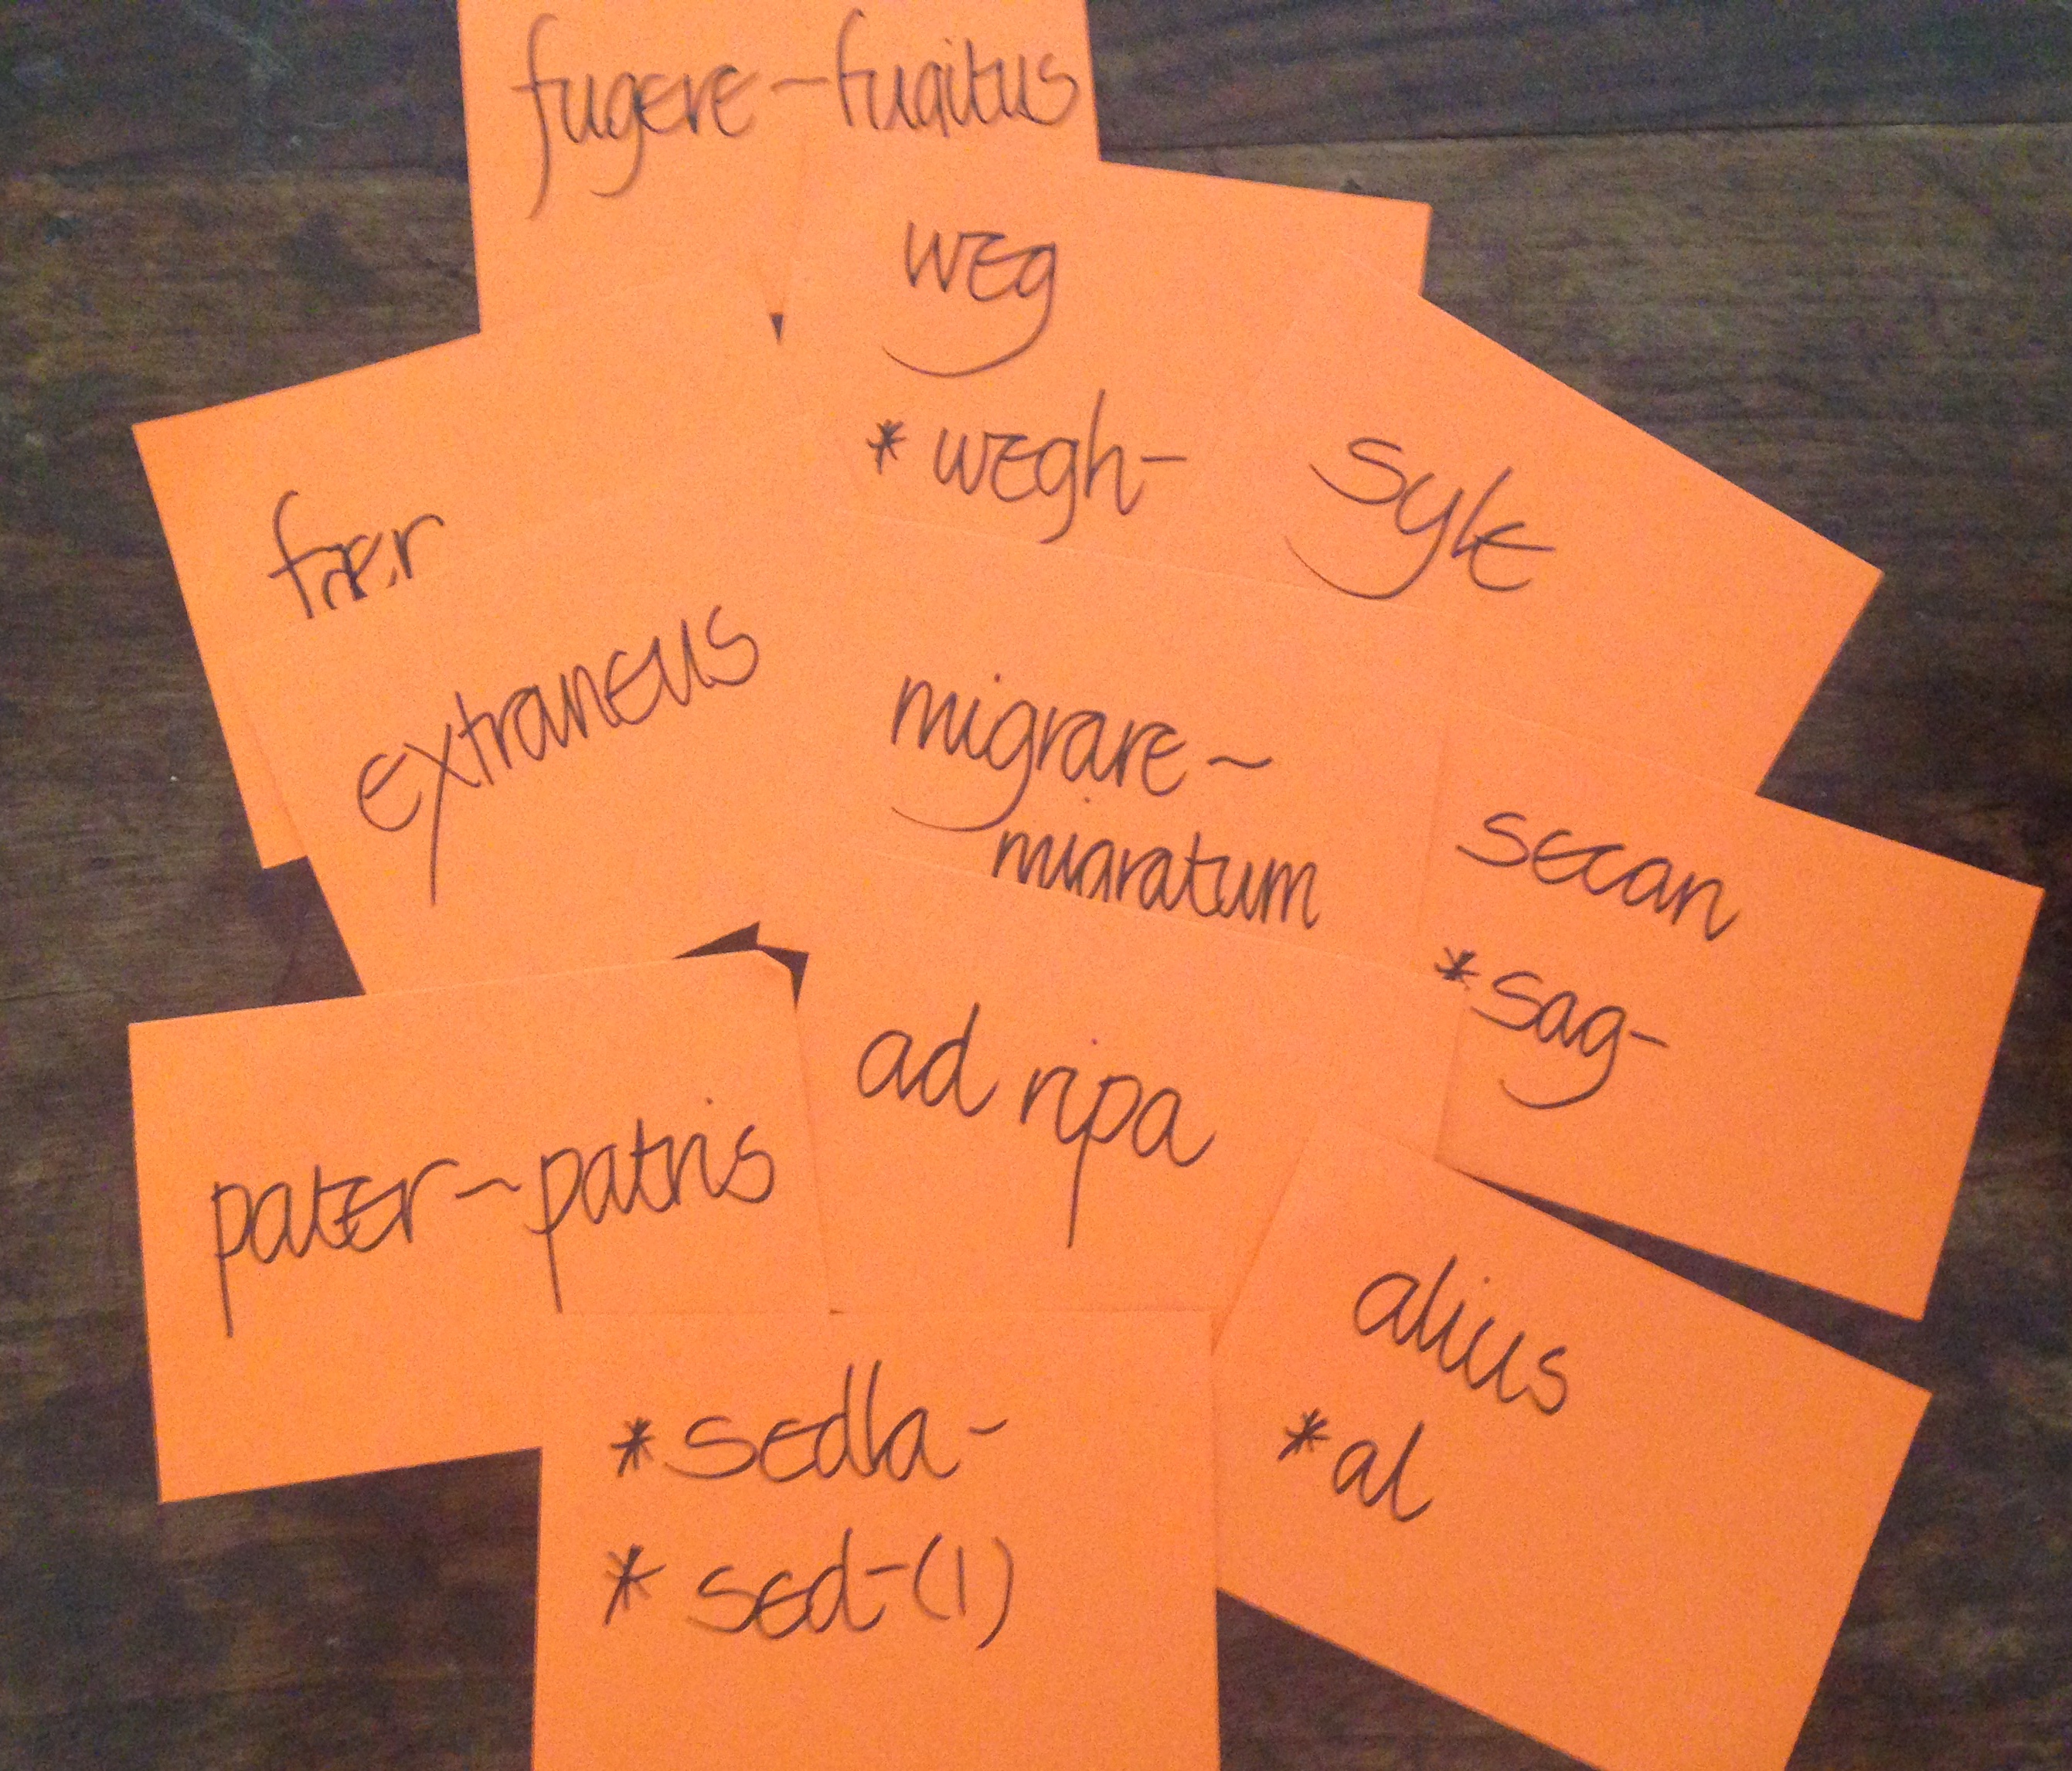 fugere-fugitus
weg
*wegh-
syle
fær
extraneus
migrare-
migratum
secan
*sag-
ad ripa
pater-patris
alius
*al
*sedla-
*sed-(1)